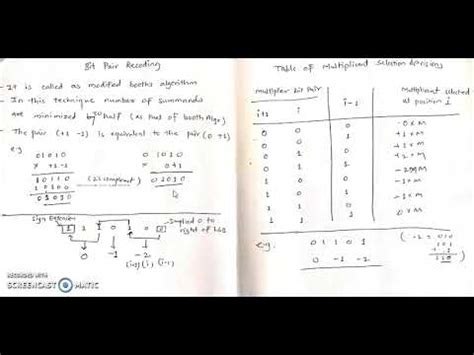 Bit Pair Recoding
- It is called as modified booths algorithm
- In this technique number of summands
are minimized by half (as that of booth Algo.)
- The pair (+1 -1) is equivalent to the pair (0 +1)
e.g
01010
× +1 -1
10110
10100
01010
(2's complement)
0 1010
× 0+1
01010
Sign Extension
Implied 0 to
right of LSB
1 1 1 0 1 0 0
0 -1 -2
(i+1) (i) (i-1)
Table of Multiplicand selection decisions
multiplier bit pair
i+1 i
i-1
Multiplicand selected
at position i
0 0 0 0×M
0 0 1 +1×M
0 1 0 +1×M
0 1 1 +2×M
1 0 0 -2×M
1 0 1 -1×M
1 1 0 -1×M
1 1 1 0×M
e.g.
0 1 1 0 1
0 -1 -2
RECORDED WITH
SCREENCAST MATIC